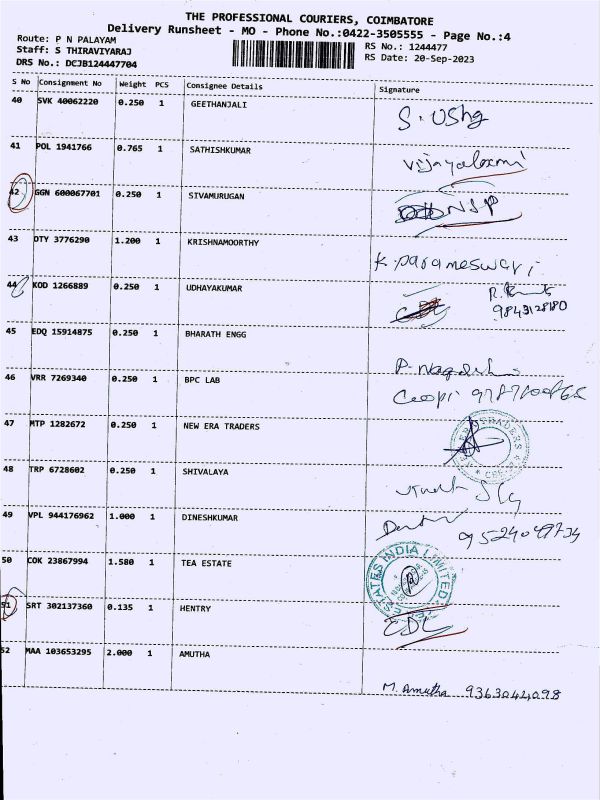 THE PROFESSIONAL COURIERS, COIMBATORE
Delivery Runsheet - MO - Phone No.:0422-3505555 - Page No.:4
Route: P N PALAYAM
Staff: S THIRAVIYARAJ
DRS No.: DCJB124447704
RS No.: 1244477
RS Date: 20-Sep-2023
S No Consignment No Weight PCS Consignee Details Signature
40 SVK 40062220 0.250 1 GEETHANJALI
S. USha
41 POL 1941766 0.765 1 SATHISHKUMAR
Vijayalaxmi
42 GGN 600067701 0.250 1 SIVAMURUGAN
NSP
43 DTY 3776290 1.200 1 KRISHNAMOORTHY
K. parameswari
44 KOD 1266889 0.250 1 UDHAYAKUMAR
9843128180
45 EDQ 15914875 0.250 1 BHARATH ENGG
46 VRR 7269340 0.250 1 BPC LAB
47 MTP 1282672 0.250 1 NEW ERA TRADERS
TRADERS
48 TRP 6728602 0.250 1 SHIVALAYA
49 VPL 944176962 1.000 1 DINESHKUMAR
9524049734
50 COK 23867994 1.580 1 TEA ESTATE
STATES INDIA LIMITED
51 SRT 302137360 0.135 1 HENTRY
CDL
52 MAA 103653295 2.000 1 AMUTHA
M. Amutha 9363044098